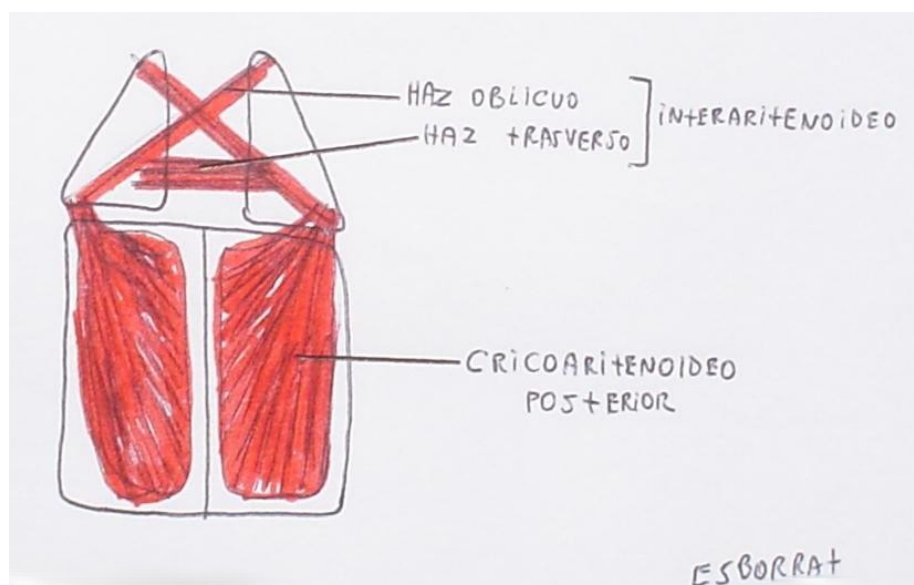 HAZ OBLICUO
HAZ TRASVERSO
INTERARITENOIDEO
CRICOARITENOIDEO
POSTERIOR
ESBORRAT